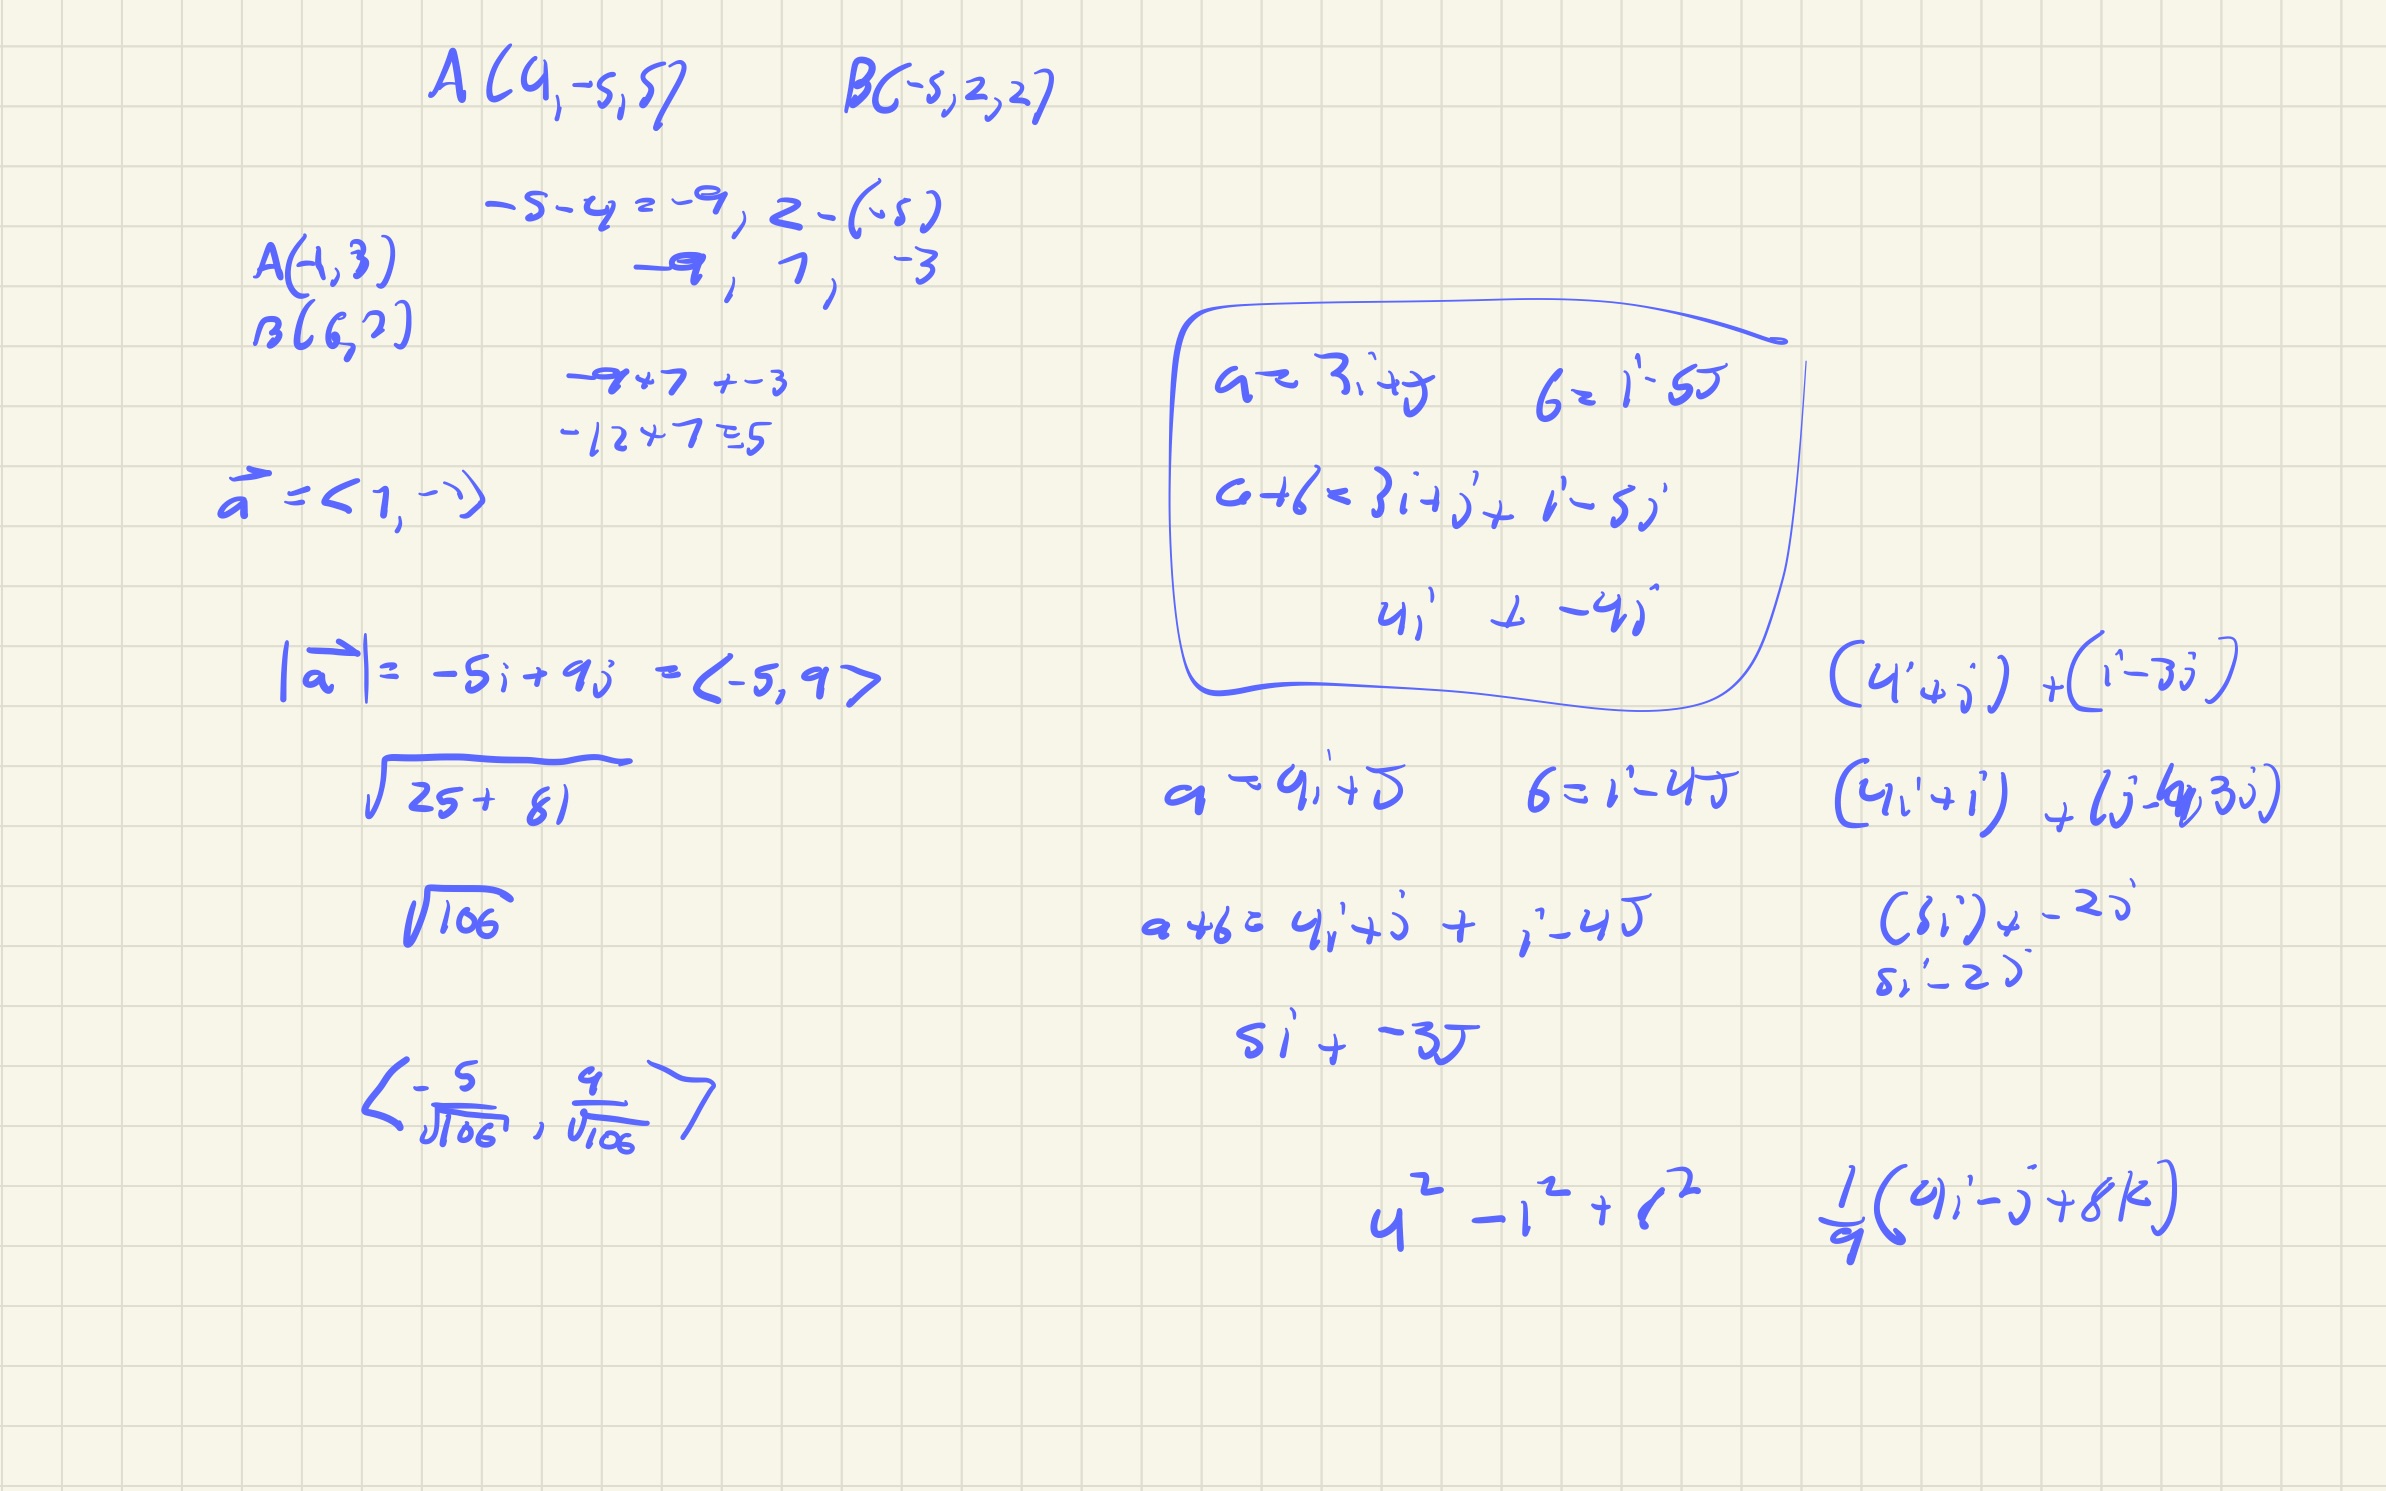 A(4,-5,5) B(-5,2,2)
-5-4=-9, 2-(-5)
-9, 7, -3
A(-1,3)
B(6,2)
-9+7+-3
-12+7=-5
a = <7,->
|a| = -5i+9j = <-5,9>
√25+81
√106
<-5/√106, 9/√106>
a=3i+j b=i-5j
a+b=3i+j+i-5j
4i + -4j
a=4i+j b=i-4j
a+b=4i+j + i-4j
5i + -3j
(4i+j)+(i-3j)
(4i+i)+(j-3j)
(5i)+-2j
5i-2j
4²-1²+ ²
1/9(4i-j+8k)